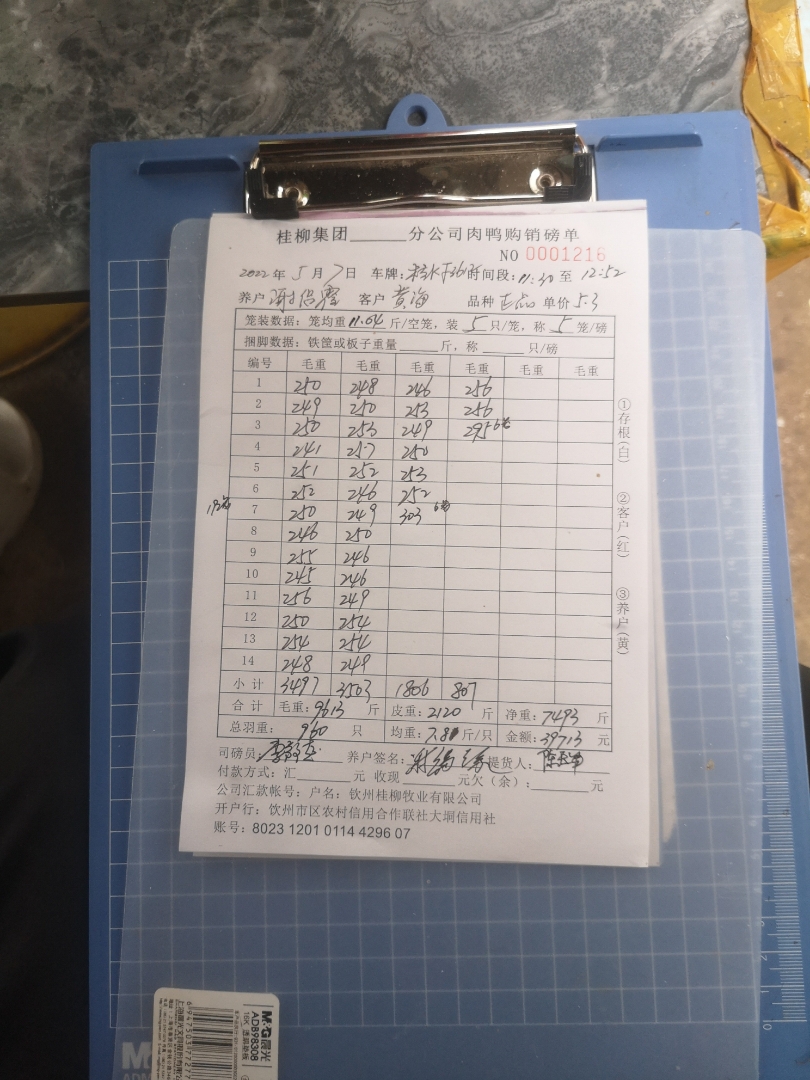 桂柳集团______分公司肉鸭购销磅单
NO 0001216
2022年5月7日 车牌: 时间段:11:30至12:52
养户 客户 黄海 品种 正品 单价 5.3
笼装数据:笼均重11.04斤/空笼,装5只/笼,称5笼/磅
捆脚数据:铁筐或板子重量______斤,称______只/磅
编号 毛重 毛重 毛重 毛重 毛重 毛重
1 250 248 246 256
2 249 250 253 256
3 250 253 249 295 6笼
4 241 257 250
5 251 252 253
6 252 246 252
192笼
7 250 249 303 6笼
8 246 250
9 255 246
10 245 246
11 256 249
12 250 254
13 254 254
14 248 249
小计 3497 3503 1806 807
合计 毛重:9613斤 皮重:2120斤 净重:7493斤
总羽重: 960 只 均重:7.81斤/只 金额:39713元
司磅员: 养户签名: 提货人:
付款方式:汇______元 收现______元欠(余):______元
公司汇款帐号:户名:钦州桂柳牧业有限公司
开户行:钦州市区农村信用合作联社大垌信用社
账号:8023 1201 0114 4296 07
①存根(白)
②客户(红)
③养户(黄)
M&G晨光
ADB98308
16K